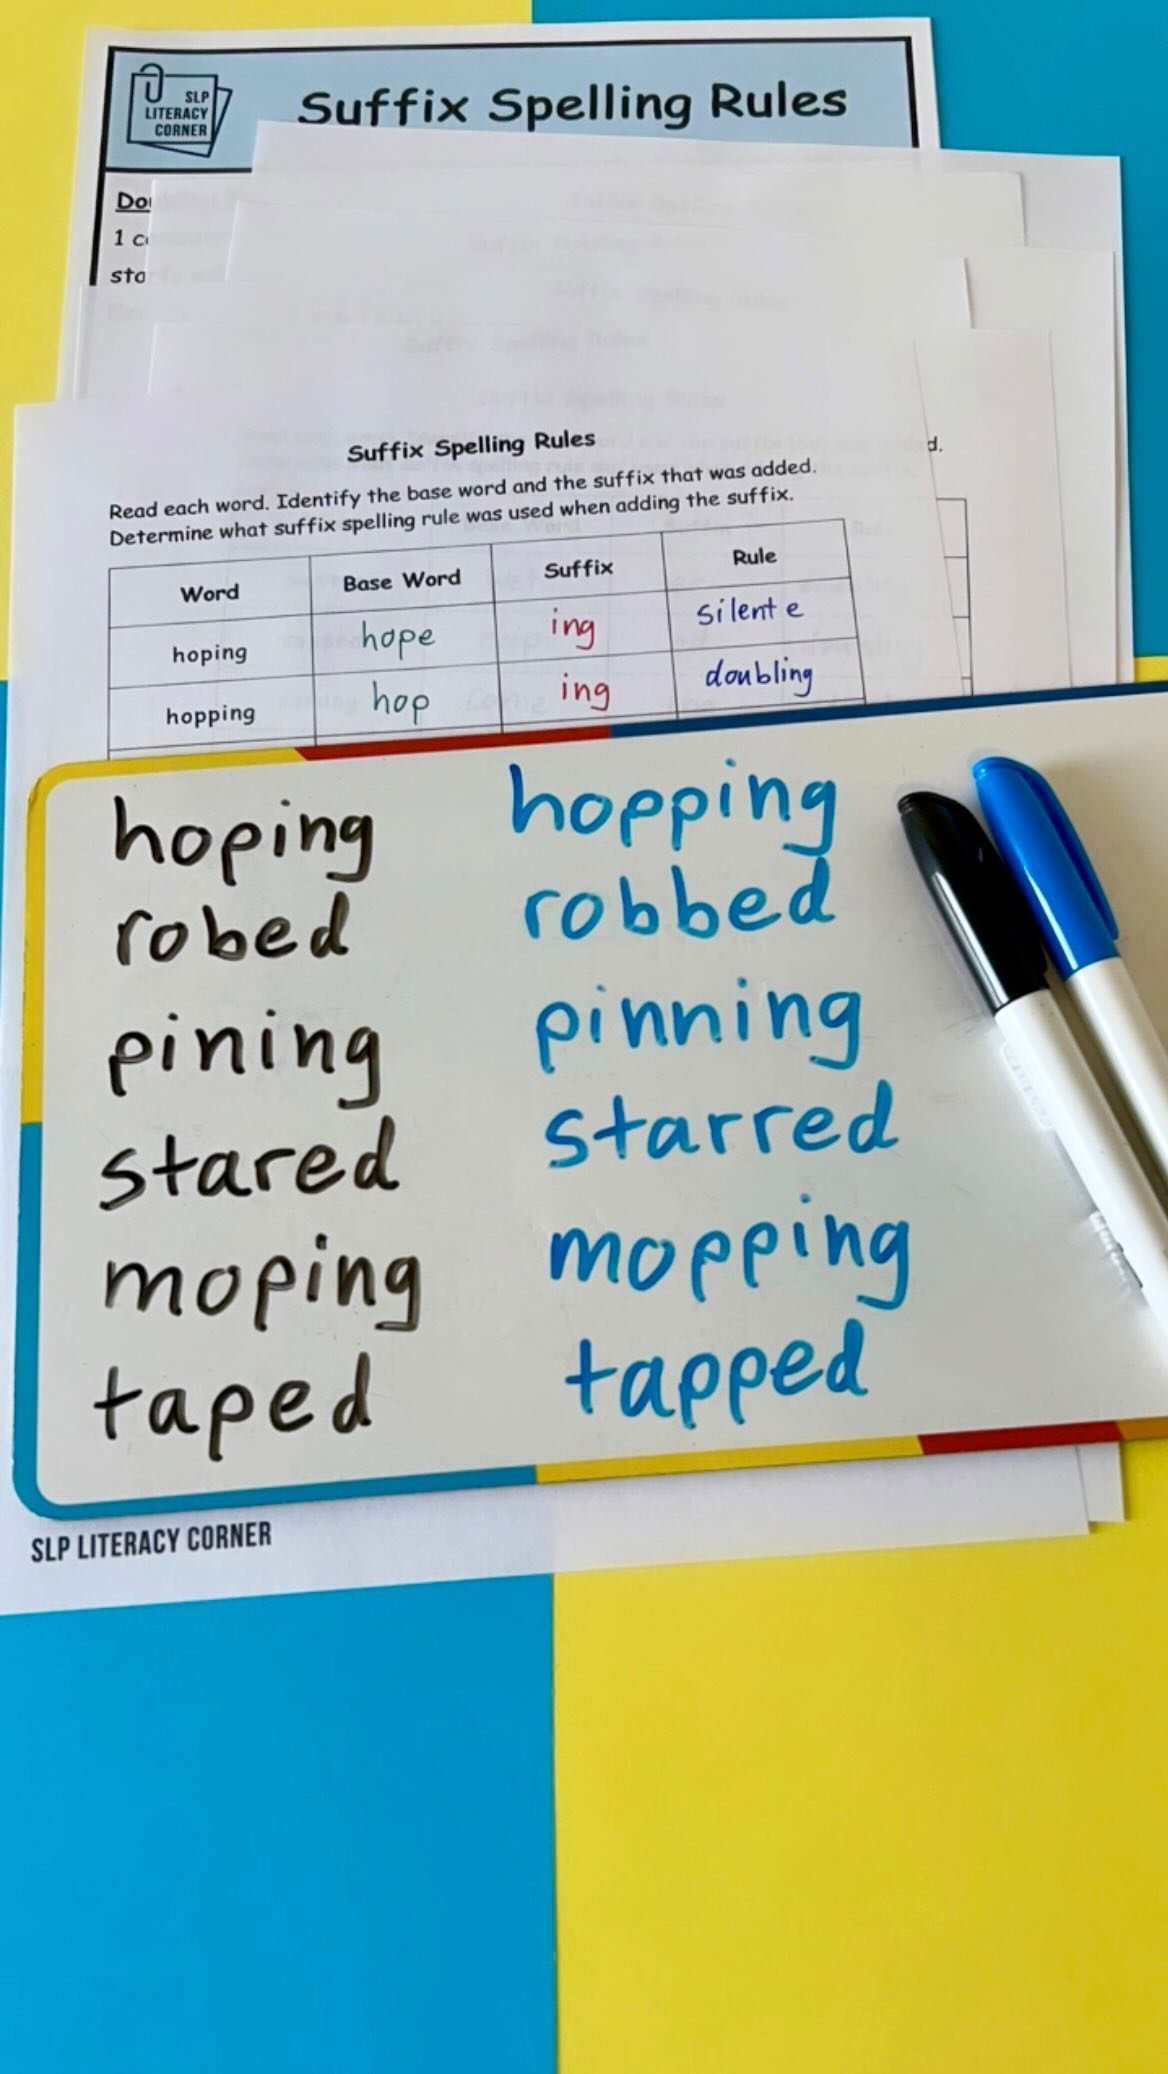 SLP
LITERACY
CORNER
Suffix Spelling Rules
1
d.
Suffix Spelling Rules
Read each word. Identify the base word and the suffix that was added.
Determine what suffix spelling rule was used when adding the suffix.
Word Base Word Suffix Rule
hoping hope ing silent e
hopping hop ing doubling
hoping hopping
robed robbed
pining pinning
stared starred
moping mopping
taped tapped
SLP LITERACY CORNER